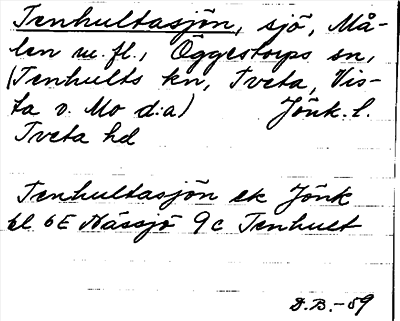 Tenhultasjön, sjö, Må-
len m.fl., Öggestorps sn,
(Tenhults kn, Tveta, Vis-
ta o. Mo d:a) Jönk. l.
Tveta hd
Tenhultasjön ek Jönk
bl 6E Nässjö 9c Tenhult
D.B.-59